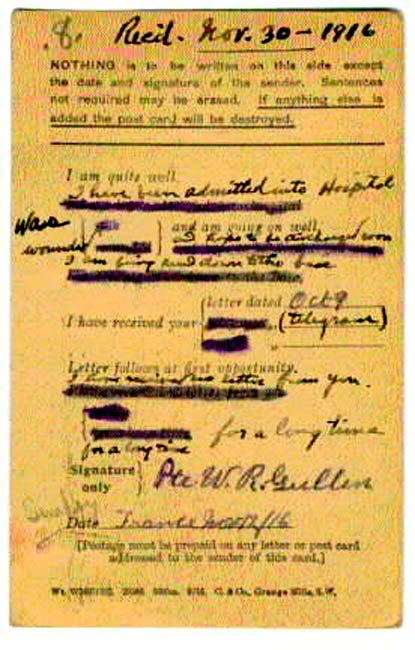 8. Recd. Nov. 30 - 1916
NOTHING is to be written on this side except
the date and signature of the sender. Sentences
not required may be erased. If anything else is
added the post card will be destroyed.
I am quite well.
I have been admitted into Hospital
and am going on well.
I hope to be discharged soon
I am being down to the base
letter dated Oct 9
I have received your
(telegram)
Letter follows at first opportunity.
I have received no letter from you.
for a long time
for a long time
Signature
only
Pte. W. R. Gullen
Date France Nov
[Postage must be prepaid on any letter or post card
addressed to the sender of this card.]
C. & Co., Grange Mills, S.W.